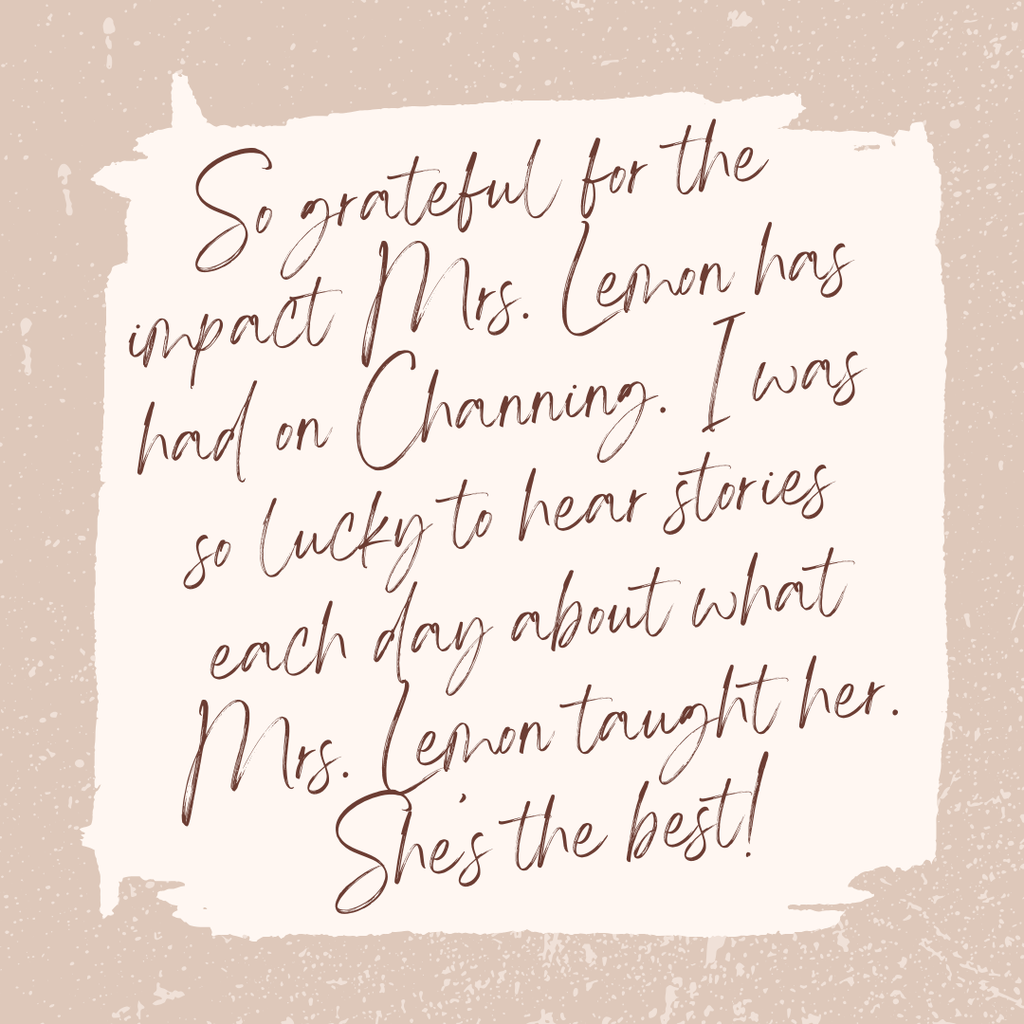 So grateful for the
impact Mrs. Lemon has
had on Channing. I was
so lucky to hear stories
each day about what
Mrs. Lemon taught her.
She's the best!